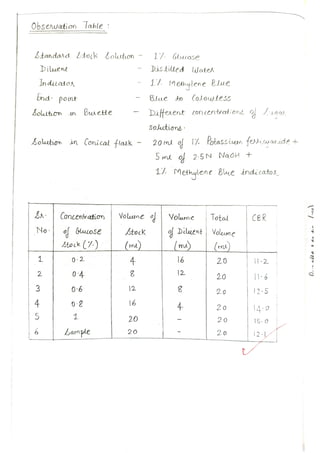 Observation Table :
Standard Stock Solution - 1% Glucose
Diluent - Distilled Water
Indicator - 1% Methylene Blue
End-point - Blue to Colourless
Solution in Burette - Different concentrations of Sugar
solutions.
Solution in Conical flask - 20ml of 1% Potassium ferricyanide +
5ml of 2.5N NaOH +
1% Methylene Blue indicator
Sr. No. Concentration of Glucose Stock (%) Volume of Stock (ml) Volume of Diluent (ml) Total Volume (ml) CBR
1 0.2 4 16 20 11.2
2 0.4 8 12 20 11.6
3 0.6 12 8 20 12.5
4 0.8 16 4 20
5 1 20 - 20
6 Sample 20 - 20